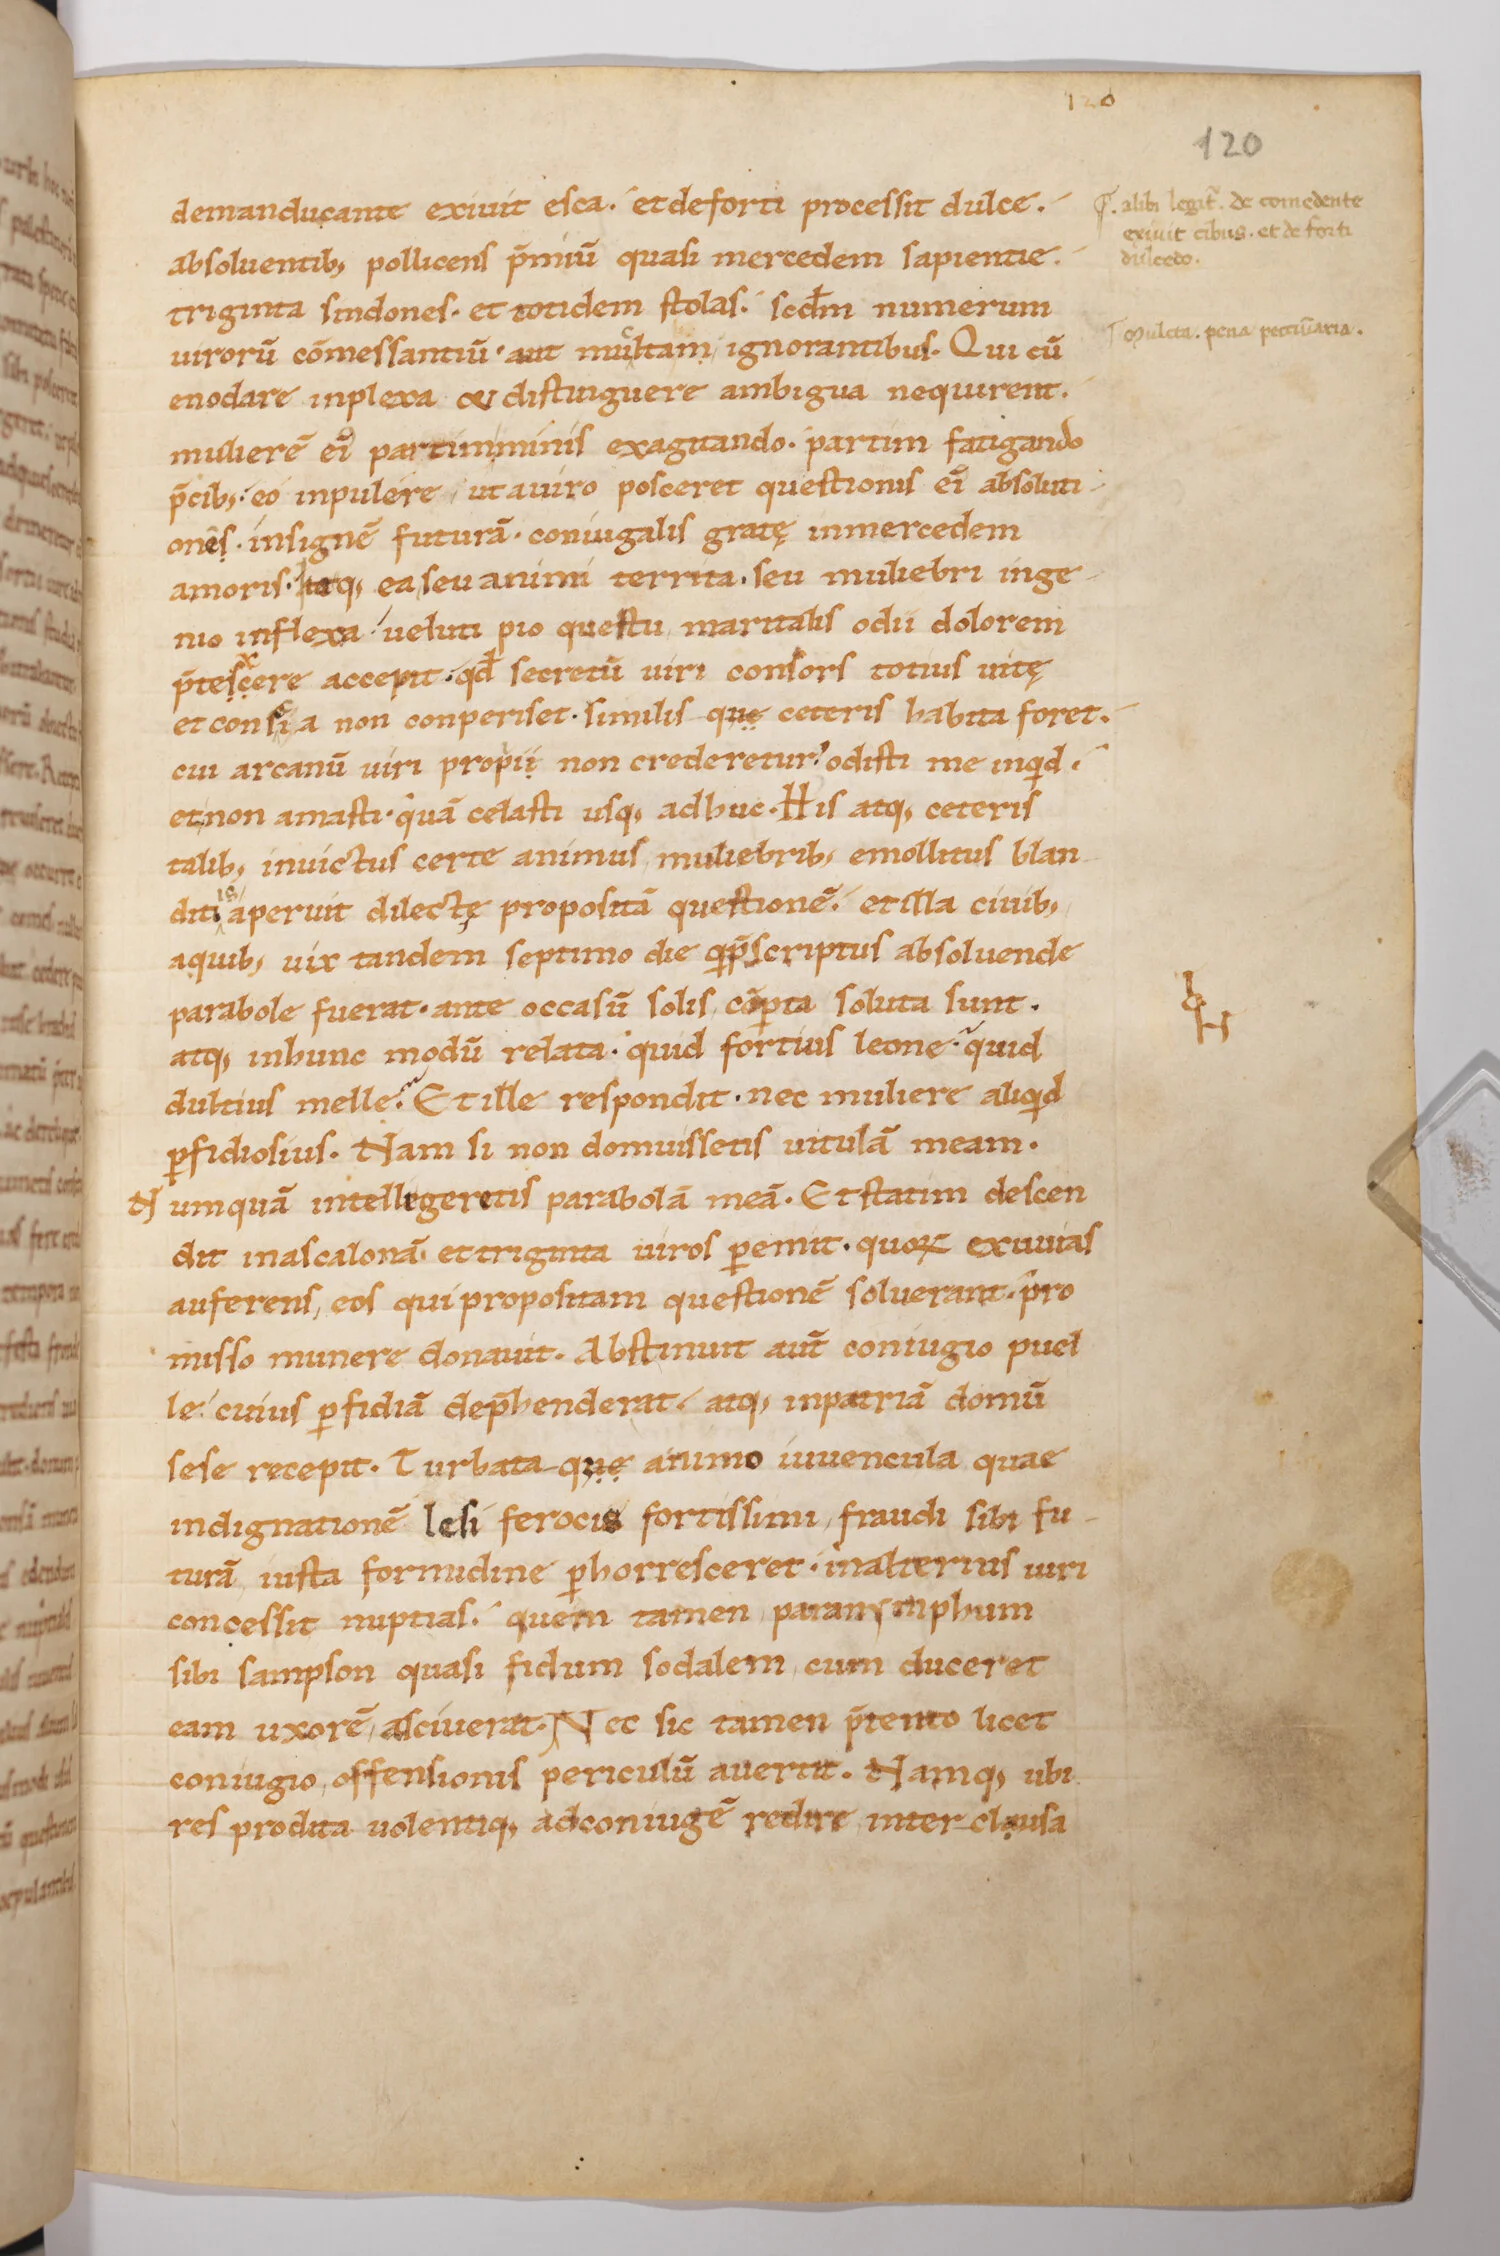 120
120
demanducante exiuit esca. et deforti processit dulce.
absoluentib; pollicens p̄miū quasi mercedem sapientie.
triginta sindones. et totidem stolas. scdm̄ numerum
uirorū cōmessantiū. aut mulctam ignorantibus. Qui cū
enodare inplexa & distinguere ambigua nequirent.
mulierē ei᷒ partim minis exagitando. partim fatigando
p̄cib; eo inpulere ut auiro posceret questionis ei᷒ absoluti
onēs. insignē futurā. coniugalis gratę inmercedem
amoris. atq; ea seu animi territa. seu muliebri inge
nio inflexa ueluti pio questu maritalis odii dolorem
p̄texere accepit. qđ secretū uiri consors totius uitę
et conscia non conperisset. similis que ceteris habita foret.
cui arcanū uiri proprii non crederetur. odisti me inqid.
et non amasti. quā celasti usq; adhuc. His atq; ceteris
talib; inuictus certe animus muliebrib; emollitus blan
ditiis aperuit dilectę propositā questionē. et illa ciuib;
aquib; uix tandem septimo die qui p̄scriptus absoluende
parabole fuerat. ante occasū solis cōperta soluta sunt.
atq; inhunc modū relata. quid fortius leone. quid
dulcius melle. Et ille respondit. nec muliere aliqid
ꝑfidiosius. Nam si non domuissetis uitulā meam.
Numquā intellegeretis parabolā meā. Et statim descen
dit inascalonā. et triginta uiros ꝑemit. quoꝝ exuuias
auferens, eos qui propositam questionē soluerant. pro
misso munere donauit. Abstinuit aūt coniugio puel
le. cuius ꝑfidiā dep̄henderat. atq; inpatriā domū
sese recepit. Turbata que animo iuuencula quae
indignationē lesi ferocis fortissimi, fraudi sibi fu
turā iusta formidine ꝑhorresceret. inalterius uiri
concessit nuptias. quem tamen paranymphum
sibi sampson quasi fidum sodalem cum duceret
eam uxorē asciuerat. Nec sic tamen p̄tento licet
coniugio offensionis periculū auertit. Namq; ubi
res prodita uolentiq; adconiugē redire interclausa
alibi legit̄. de comedente
exiuit cibus. et de forti
dulcedo.
Mulcta. pena peccuniaria.